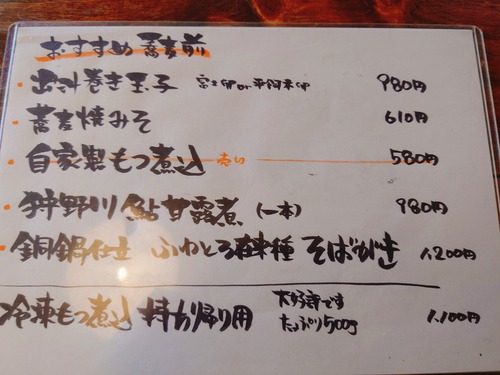 おすすめ 蕎麦前
・出汁巻き玉子 980円
蕎麦焼みそ 610円
・自家製もつ煮込 売切 580円
・狩野川 鮎甘露煮 (一本) 980円
・銅鍋仕立 ふわとろ在来種 そばがき 1,200円
冷凍もつ煮込 持ち帰り用 大好評です たっぷり500g 1,100円